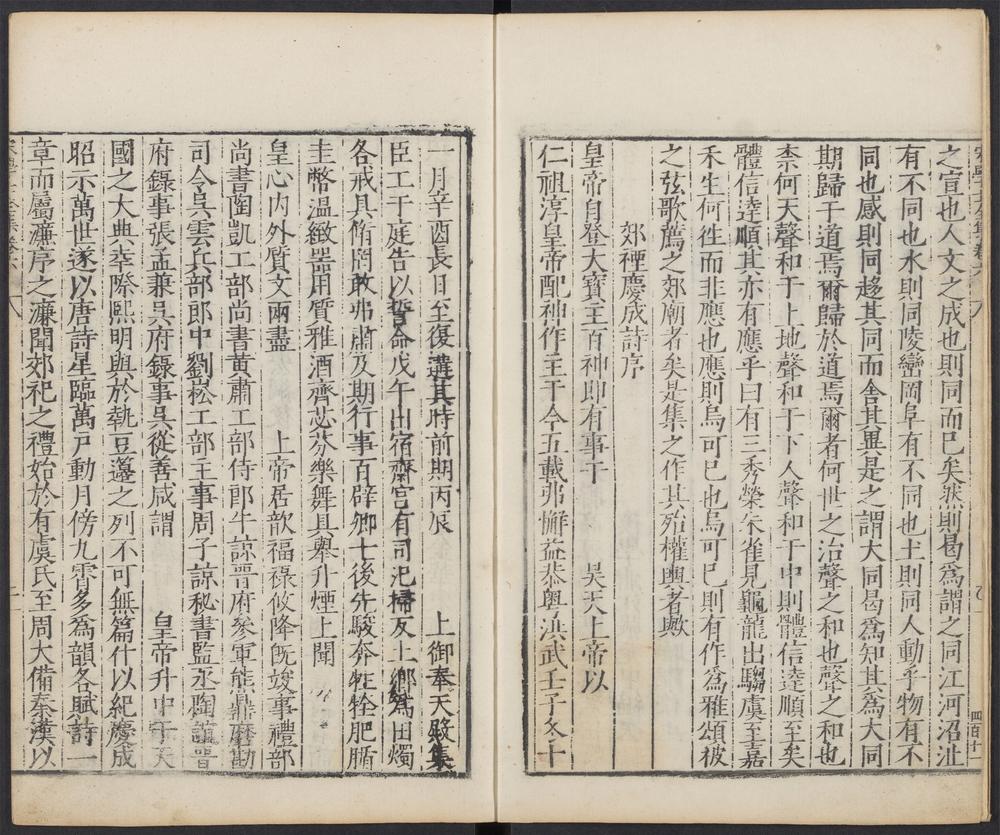 之宣也人文之成也則同而已矣然則曷為謂之同江河沼沚
有不同也水則同陵巒岡阜有不同也土則同人動乎物有不
同也感則同趍其同而舍其異是之謂大同曷為知其為大同
期歸于道焉爾歸於道焉爾者何世之治聲之和也聲之和也
柰何天聲和于上地聲和于下人聲和于中則體信達順至矣
體信達順其亦有應乎曰有三秀榮朱雀見龜龍出騶虞至嘉
禾生何徃而非應也應則烏可已也烏可已則有作為雅頌被
之弦歌薦之郊廟者矣是集之作其殆權輿者歟
郊禋慶成詩序
皇帝自登大寶主百神即有事于 昊天上帝以
仁祖淳皇帝配神作主于今五載弗懈益恭粤洪武壬子冬十
一月辛酉長日至復遘其時前期丙辰 上御奉天殿集
臣工于庭告以誓命戊午出宿齋宮有司汜掃反土鄉為田燭
各戒具脩罔敢弗肅及期行事百辟卿士後先駿奔牲牷肥腯
圭幣温緻器用質雅酒齊苾芬樂舞具舉升煙上聞
皇心内外質文兩盡 上帝居歆福祿攸降既竣事禮部
尚書陶凱工部尚書黃肅工部侍郎牛諒晋府參軍熊鼎磨勘
司令吳雲兵部郎中劉崧工部主事周子諒秘書監丞陶誼晋
府錄事張孟兼吳府錄事吳從善咸謂 皇帝升中于天
國之大典幸際熙明與於執豆籩之列不可無篇什以紀慶成
昭示萬世遂以唐詩星臨萬戸動月傍九霄多為韻各賦詩一
章而屬濂序之濂聞郊祀之禮始於有虞氏至周大備秦漢以